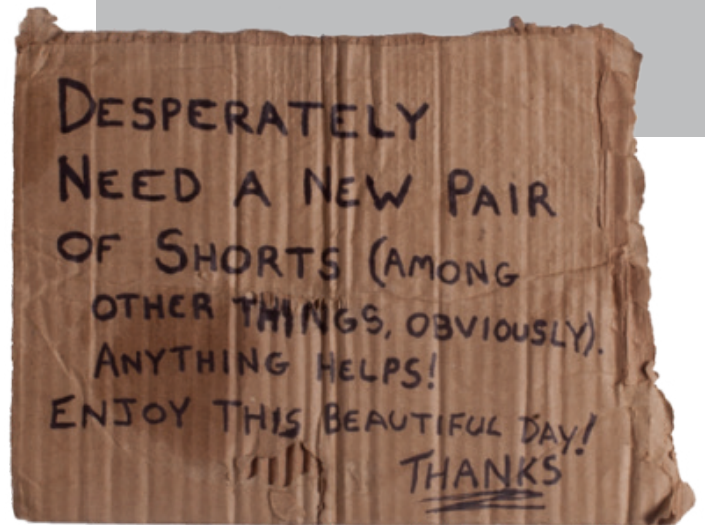 DESPERATELY
NEED A NEW PAIR
OF SHORTS (AMONG
OTHER THINGS, OBVIOUSLY).
ANYTHING HELPS!
ENJOY THIS BEAUTIFUL DAY!
THANKS